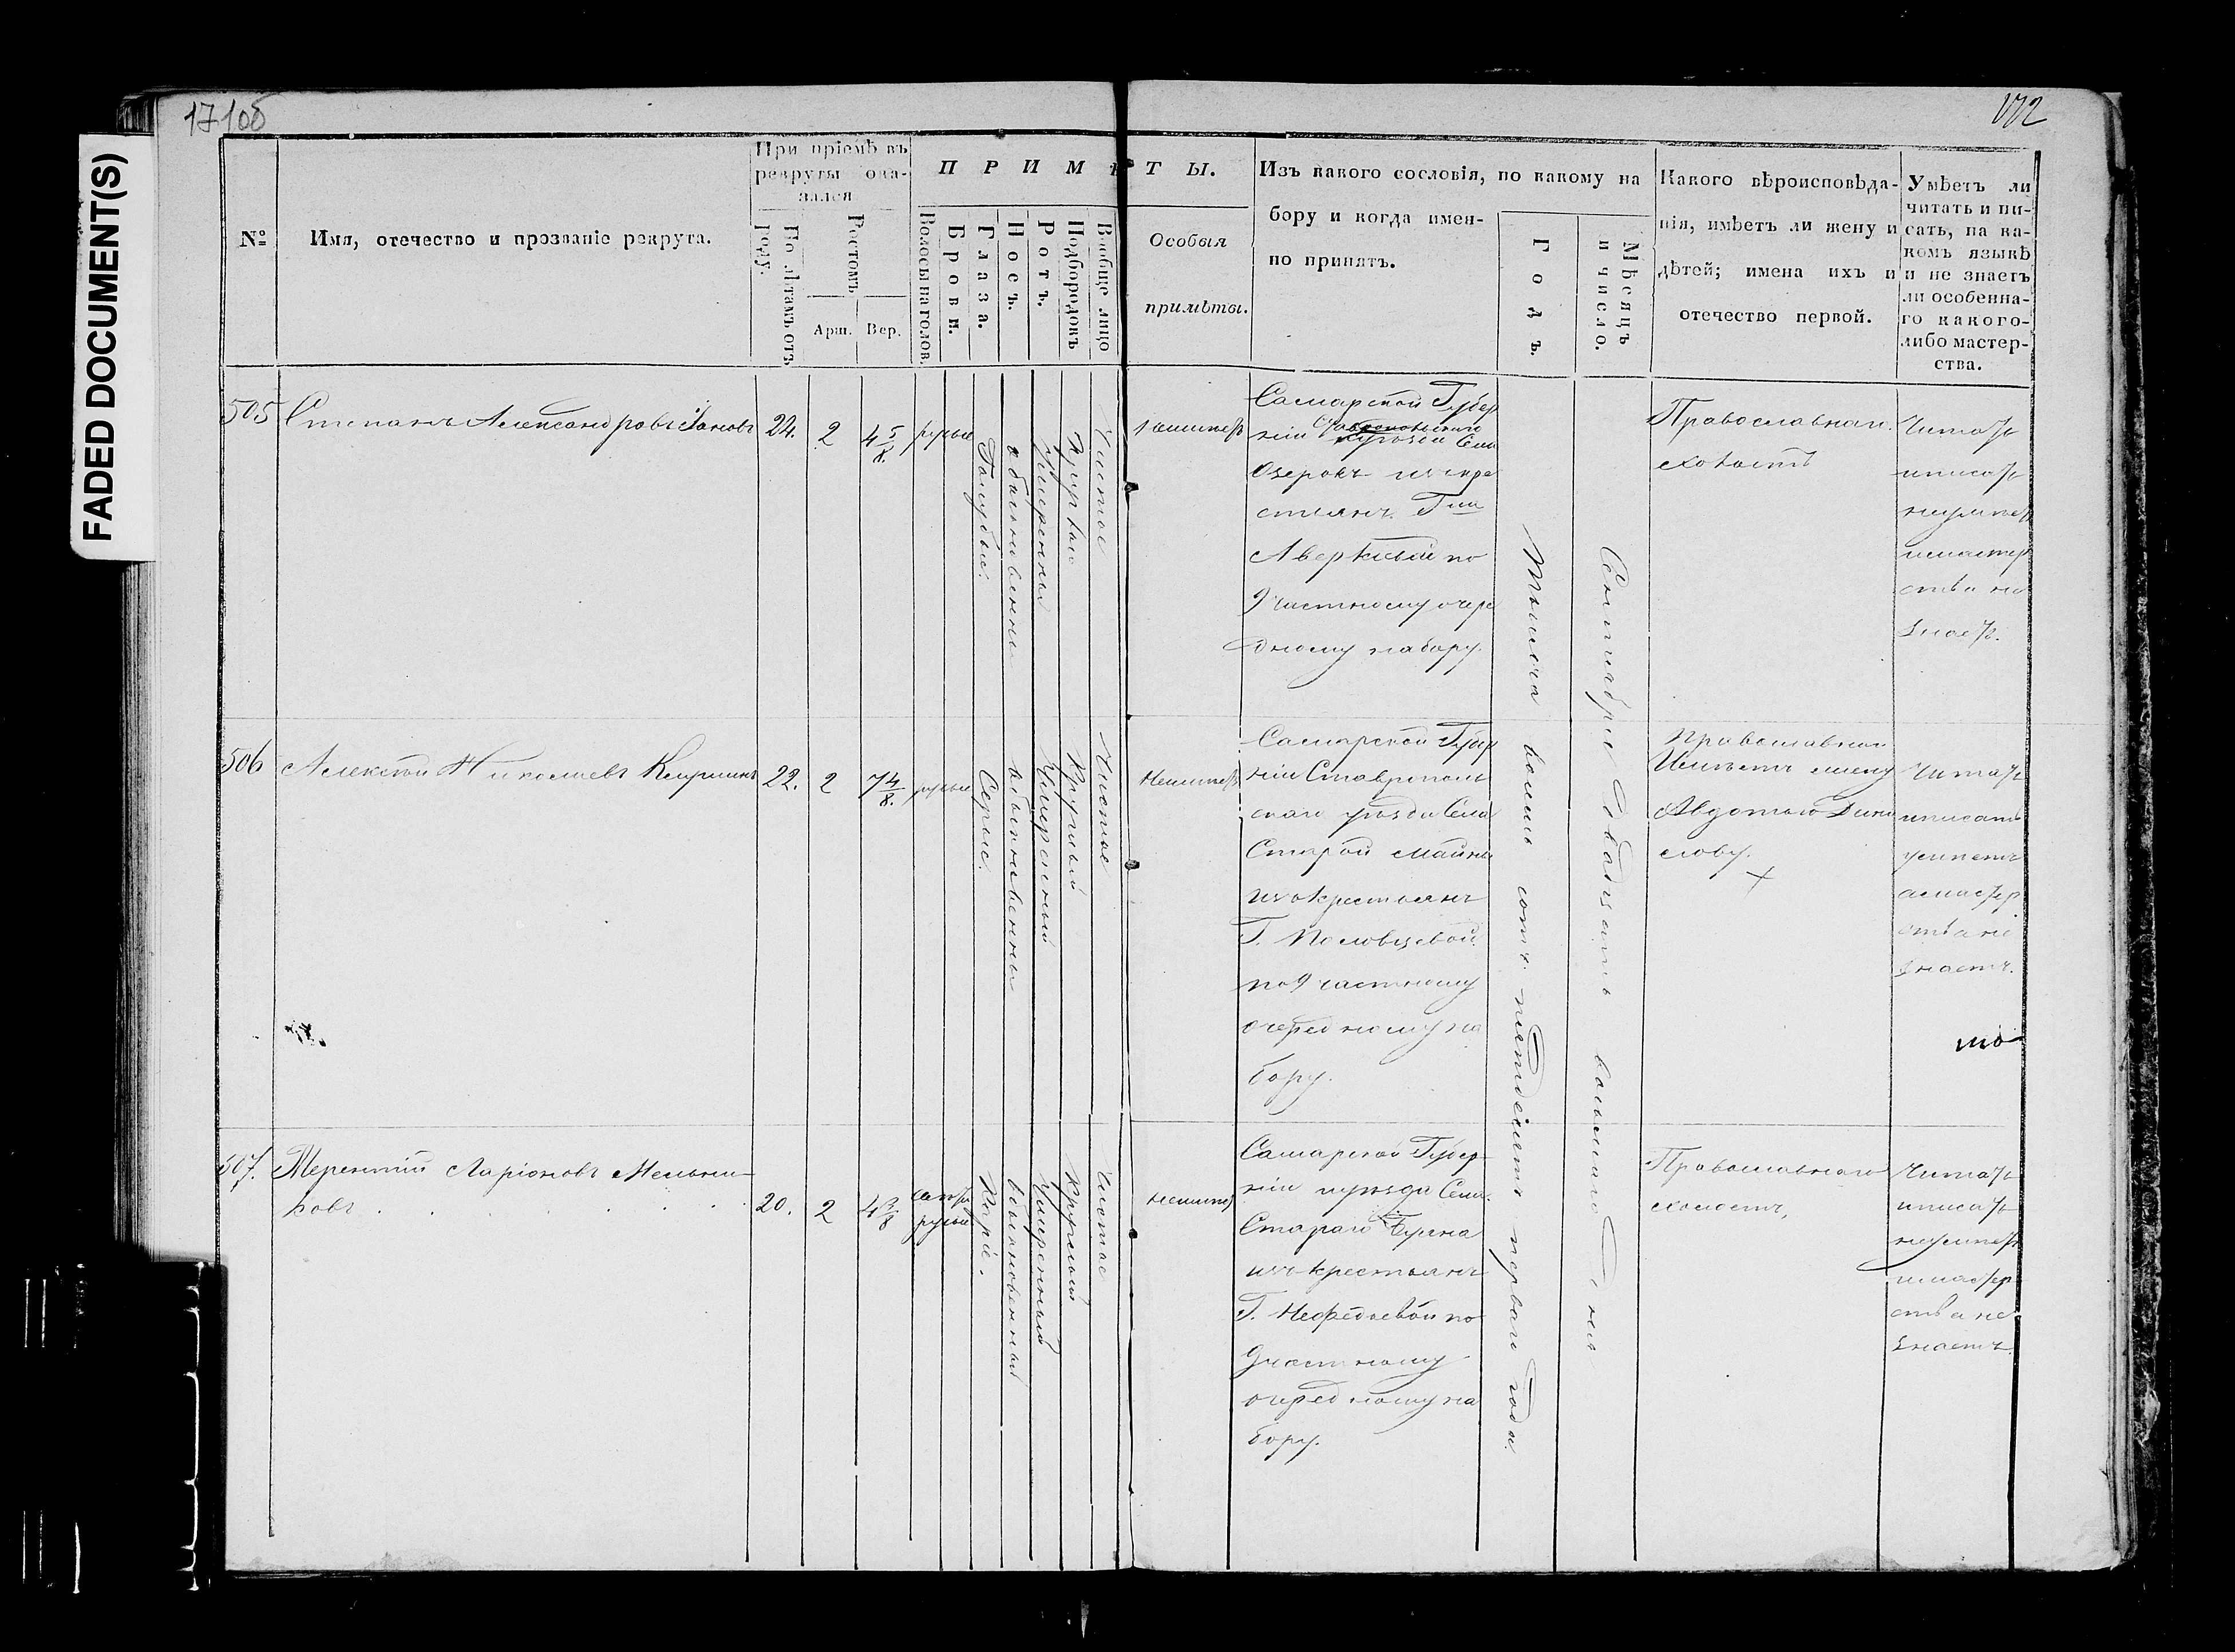 17 об
172
FADED DOCUMENT(S)
№
Имя, отечество и прозваніе рекрута.
При пріемѣ въ
рекруты ока-
зался
По лѣтамъ отъ
роду.
Ростомъ
Арш.
Вер.
ПРИМѢТЫ.
Волосы на головѣ
Брови.
Глаза.
Носъ.
Ротъ.
Подбородокъ
Вообще лицо
Особыя
примѣты.
Изъ какого сословія, по какому на
бору и когда имен-
но принятъ.
Годъ.
Мѣсяцъ
и число.
Какого вѣроисповѣда-
нія, имѣетъ ли жену и
дѣтей; имена ихъ и
отечество первой.
Умѣетъ ли
читать и пи-
сать, на ка-
комъ языкѣ
и не знаетъ
ли особенна-
го какого-
либо мастер-
ства.
505
Степанъ Александровъ
24.
2
4 5/8.
русые
Голубые.
обыкновенный
умеренный
Круглый
Чистое
неимѣетъ
Самарской Губер
ніи Ставропольскаго
уѣзда Села
Озерокъ изъ кре
стьянъ Гжи
Аверкіевой по
9 частному очере
дному набору.
Православнаго
холостъ
Читать
и писать
неумѣетъ
и мастер
ства не
знаетъ.
506
Алексѣй Николаевъ
22.
2
7 4/8.
русые
Серые.
обыкновенный
Умеренный
Круглый
Чистое
Неимѣетъ
Самарской Губер
ніи Ставрополь
скаго уѣзда Села
Старой Майны
изъ крестьянъ
Г. Половцевой
по 9 частному
очередному на
бору.
Православнаго
Имѣетъ жену
Авдотью Дени
сову.
Читать
и писать
умѣетъ
а мастер
ства не
знаетъ.
507.
Терентій Ларіоновъ Мельни-
ковъ
20.
2
русые
Каріе.
обыкновенный
Умеренный
Круглый
Чистое
неимѣетъ
Самарской Губер-
ніи уѣзда Села
Стараго Буяна
изъ крестьянъ
Г. Нефедьевой по
9 частному
очередному на
бору.
Православнаго
холостъ,
Читать
и писать
неумѣетъ
и мастер
ства не
знаетъ.
Тысяча восемь сотъ пятдесятъ перваго года.
Сентября двадцать восьмаго дня